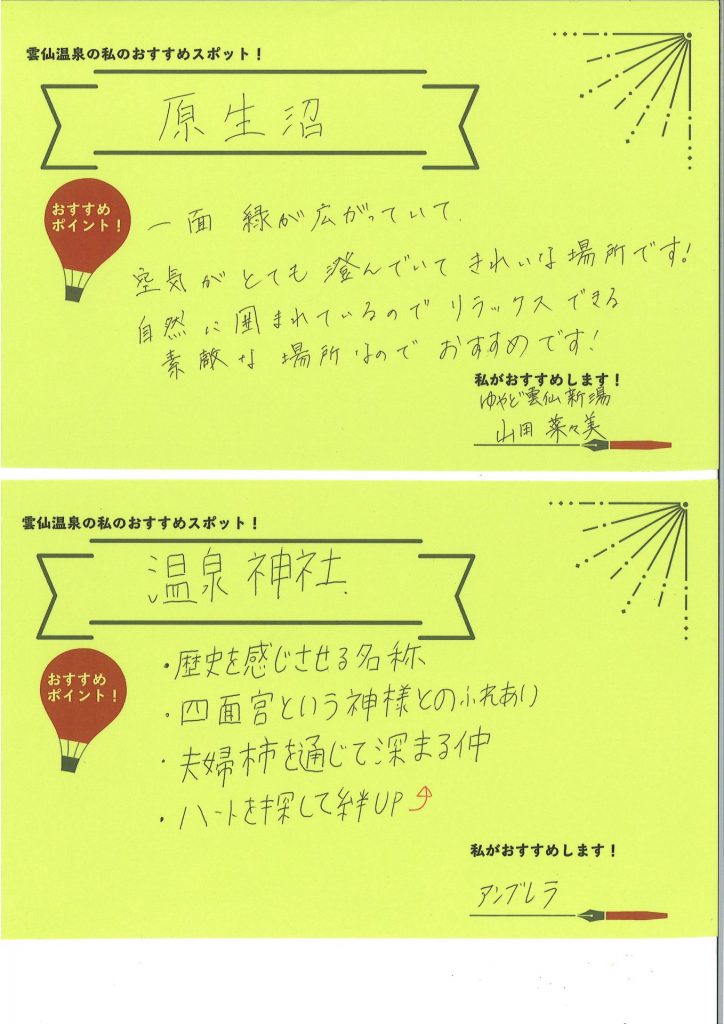 雲仙温泉の私のおすすめスポット！
原生沼
おすすめ
ポイント！
一面 緑が広がっていて、
空気がとても澄んでいてきれいな場所です!
自然に囲まれているのでリラックスできる
素敵な場所なのでおすすめです!
私がおすすめします！
ゆやど雲仙新湯
山田 菜々美
雲仙温泉の私のおすすめスポット！
温泉神社
おすすめ
ポイント！
・歴史を感じさせる名称
・四面宮という神様とのふれあい
・夫婦柿を通じて深まる仲
・ハートを探して絆UP⤴
私がおすすめします！
アンブレラ